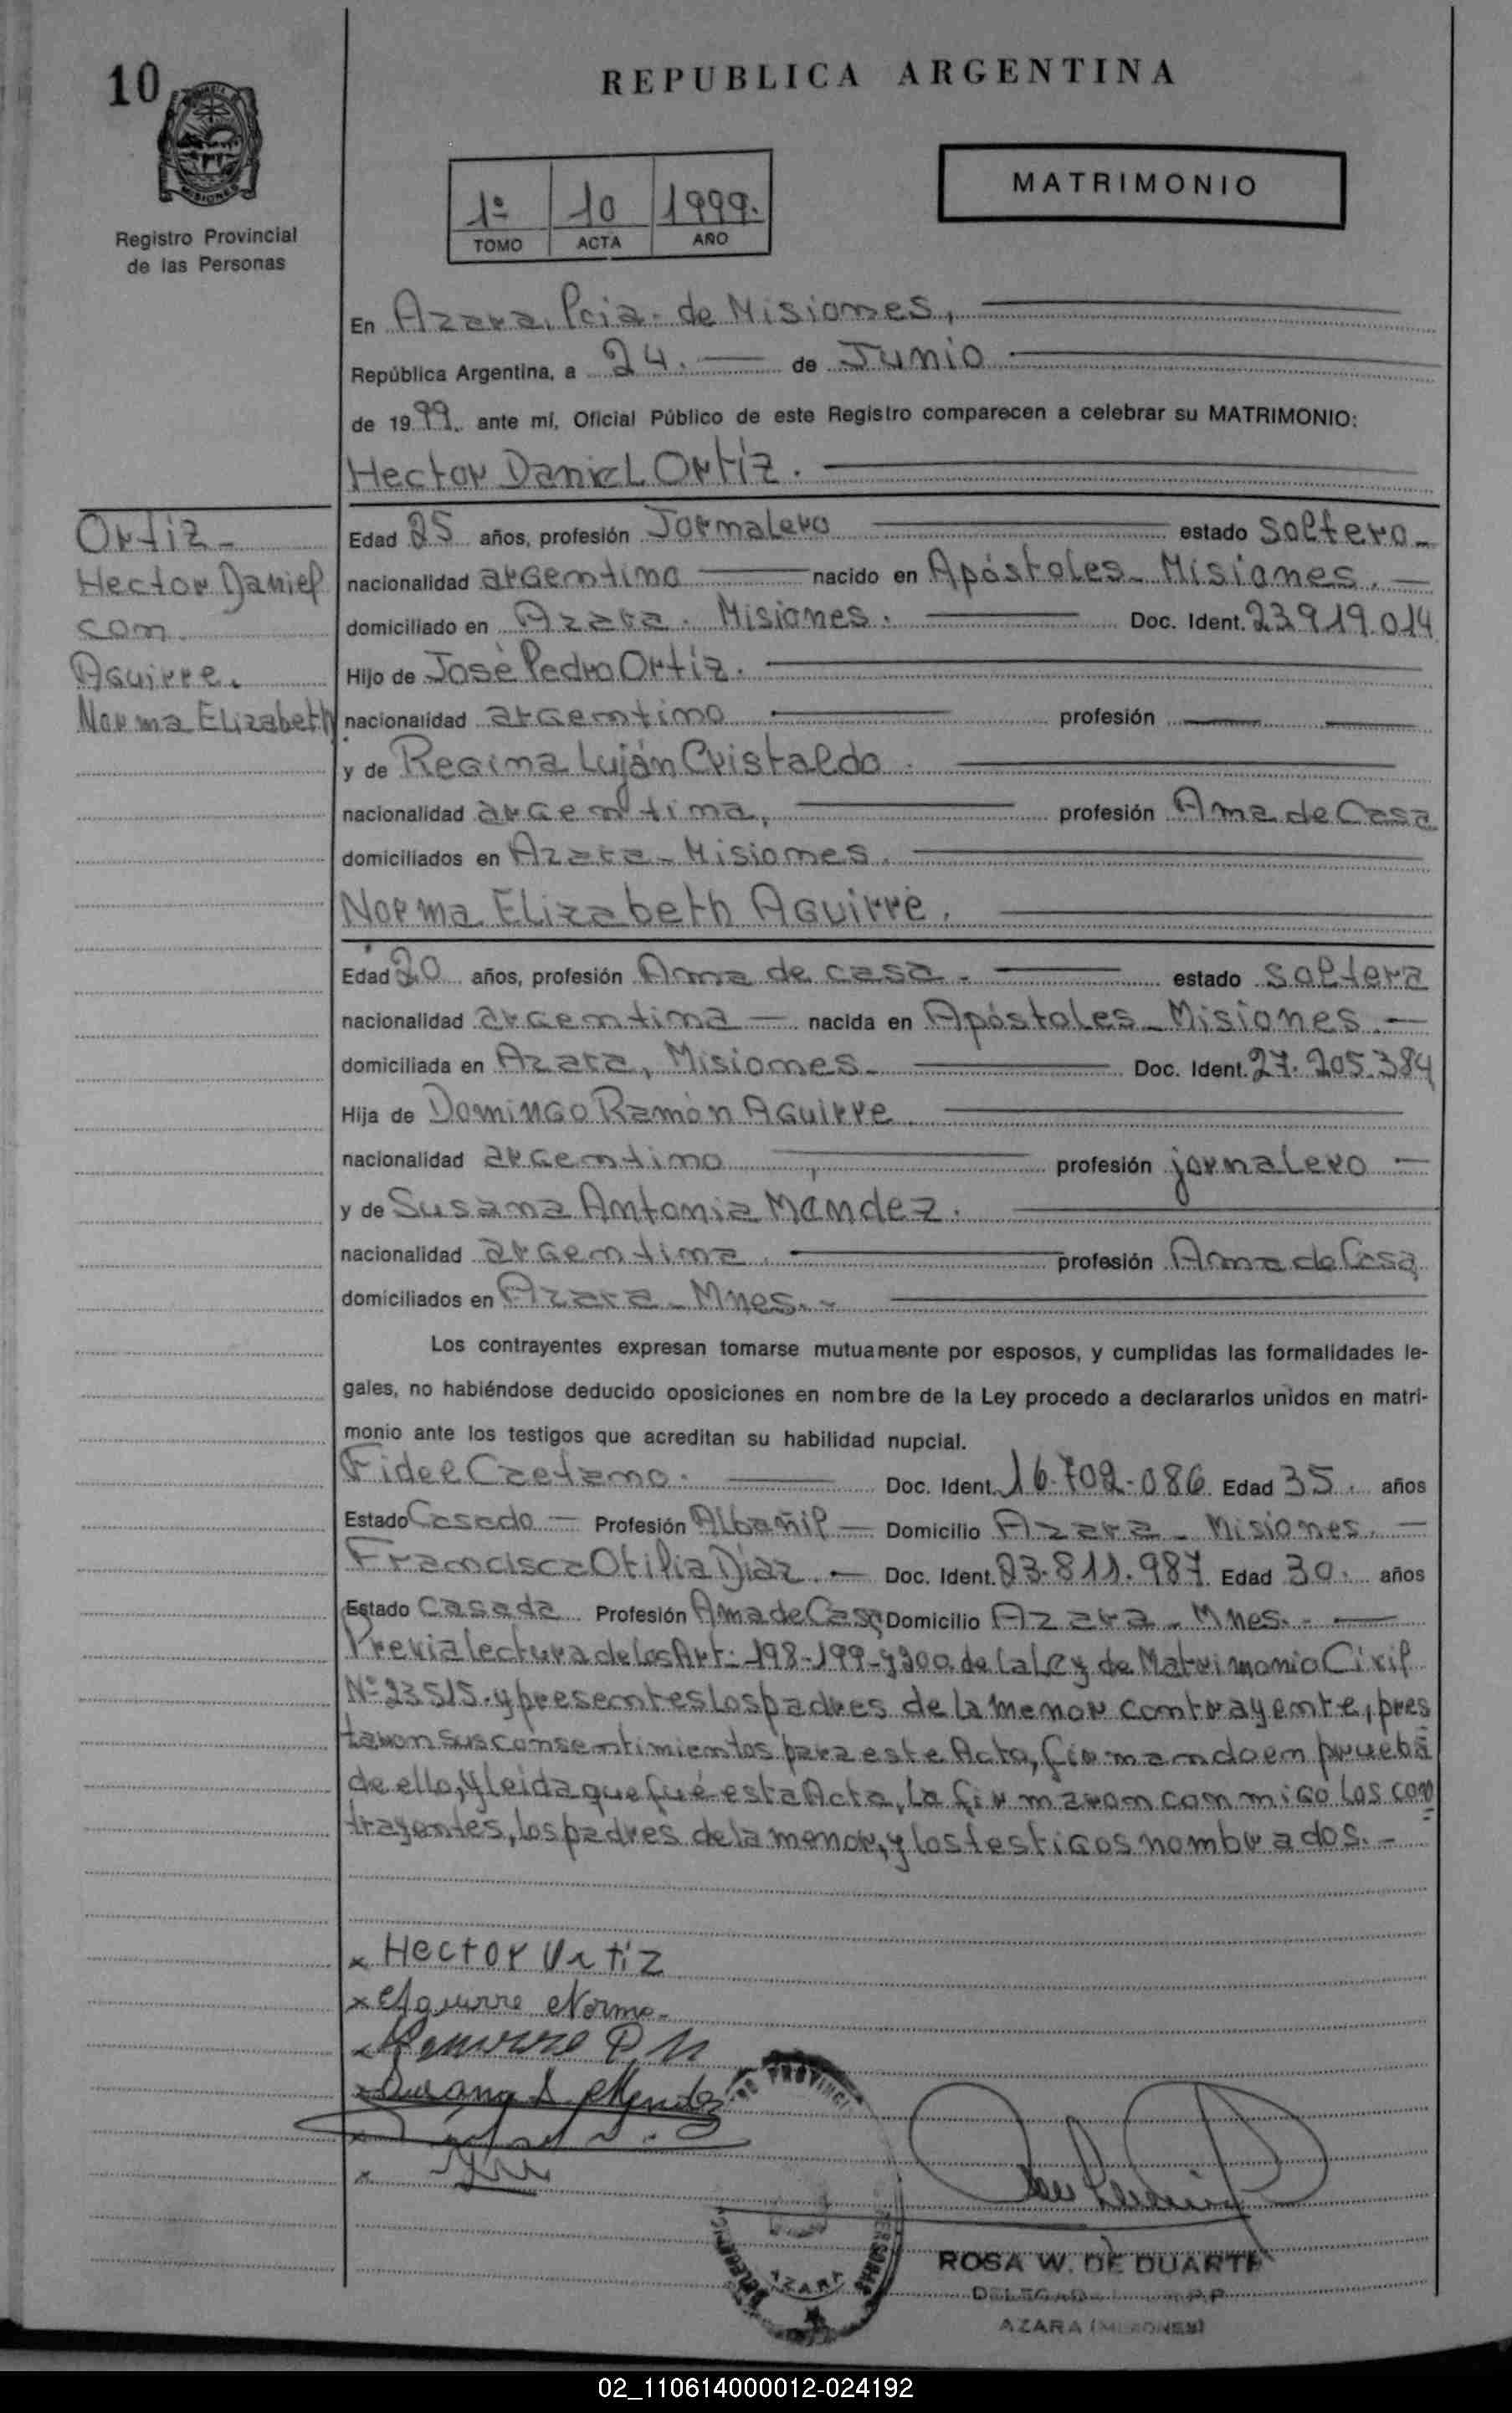 10
REPUBLICA ARGENTINA
MISIONES
Registro Provincial
de las Personas
1º 10 1999.
TOMO ACTA AÑO
MATRIMONIO
En Azara, Pcia. de Misiones,
República Argentina, a 24. de Junio
de 1999. ante mí, Oficial Público de este Registro comparecen a celebrar su MATRIMONIO:
Hector Daniel Ortíz.
Ortiz-
Hector Daniel
con
Aguirre.
Norma Elizabeth
Edad 25 años, profesión Jornalero estado soltero-
nacionalidad argentino nacido en Apóstoles- Misiones.
domiciliado en Azara. Misiones. Doc. Ident. 23.919.014
Hijo de José Pedro Ortíz.
nacionalidad argentino profesión
y de Regina Luján Cristaldo.
nacionalidad argentina, profesión Ama de Casa
domiciliados en Azara- Misiones.
Norma Elizabeth Aguirre.
Edad 20 años, profesión Ama de casa. estado soltera
nacionalidad argentina nacida en Apóstoles- Misiones.
domiciliada en Azara, Misiones. Doc. Ident. 27.205.384
Hija de Domingo Ramón Aguirre.
nacionalidad argentino, profesión jornalero
y de Susana Antonia Mendez.
nacionalidad argentina. profesión Ama de Casa
domiciliados en Azara- Mnes.-
Los contrayentes expresan tomarse mutuamente por esposos, y cumplidas las formalidades le-
gales, no habiéndose deducido oposiciones en nombre de la Ley procedo a declararlos unidos en matri-
monio ante los testigos que acreditan su habilidad nupcial.
Fidel Caetano. Doc. Ident. 16.702.086 Edad 35. años
Estado Casado Profesión Albañil Domicilio Azara- Misiones.
Francisca Otilia Díaz. Doc. Ident. 23.811.987 Edad 30. años
Estado Casada Profesión Ama de Casa Domicilio Azara- Mnes.-
Previa lectura de los Art: 198-199-y 200 de la Ley de Matrimonio Civil
Nº 23515. y presentes los padres de la menor contrayente, pres
taron sus consentimientos para este Acto, firmando en prueba
de ello, y leida que fué esta Acta, la firmaron conmigo los con
trayentes, los padres de la menor, y los testigos nombrados.-
x Hector Ortiz
x Aguirre Norma-
Aguirre D. R
Susana A Mendez
x
x
AZARA
ROSA W. DE DUARTE
AZARA (MISIONES)
02_110614000012-024192